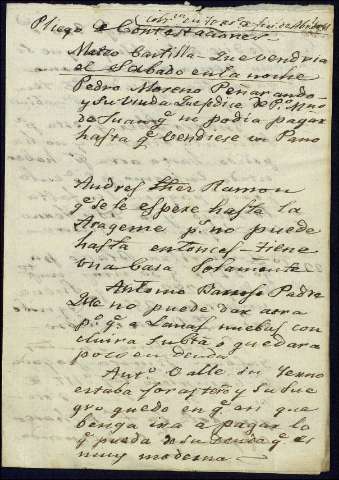 Pliego de Contestaciones
Mateo Cantilla - Que vendria
el Sabado en la noche
Pedro Moreno Peñarando
y su Viuda Luisa dice de Pº
de Juan q.e no podia pagar
hasta q.e bendiese un Pano
Andres Ramon
q.e se le espere hasta la
p.s no puede
hasta entonces - tiene
una Casa Solamente
Antonio Barroso Padre
Que no puede dar aora
p.o q.e a Lanas nuebas con
cluira su o quedara
poco en deuda
Ant.o Calle su Yerno
estaba forastero y su Sue
gro quedo en q.e asi que
benga ira a pagar lo
q.e pueda de su deuda q.e es
muy moderna.